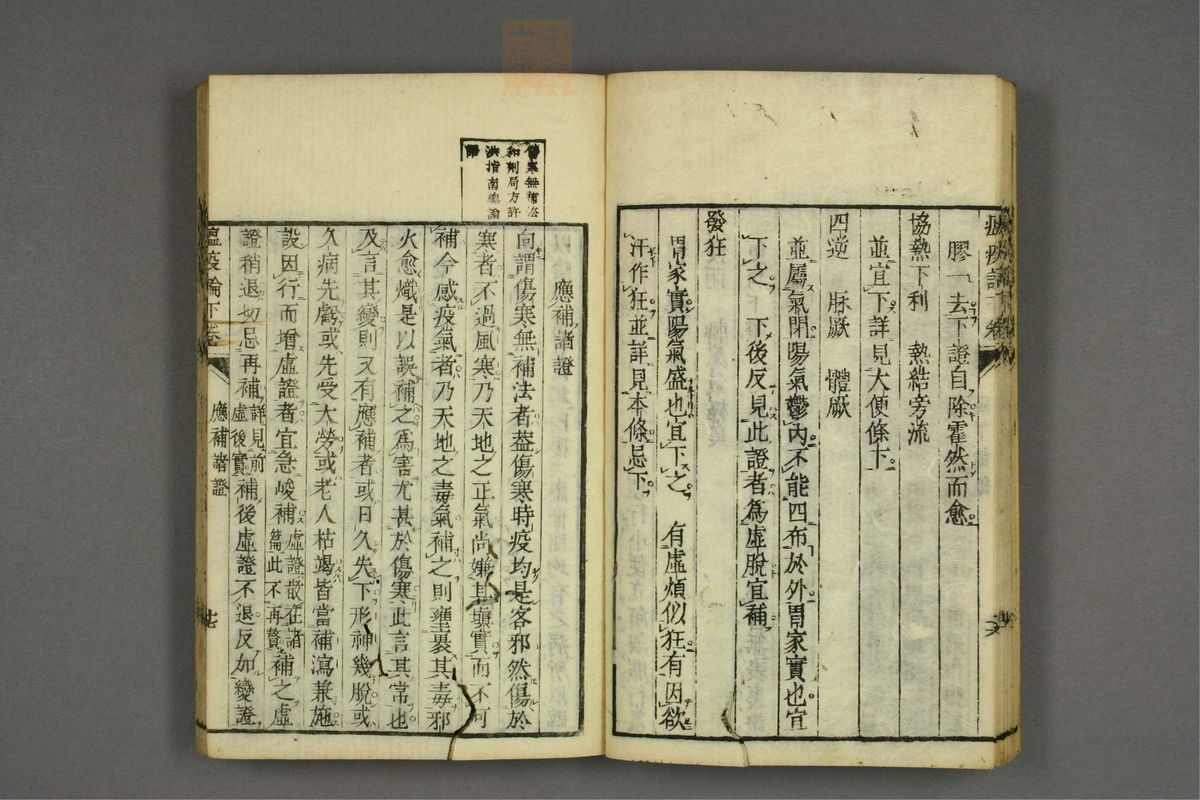 瘟疫論下卷
膠一去下證自除霍然而愈
協熱下利　熱結旁流
並宜下詳見大便條下
四逆　脉厥　體厥
並屬氣閉陽氣鬱内不能四布於外胃家實也宜
下之　下後反見此證者爲虛脫宜補
發狂
胃家實陽氣盛也宜下之　有虛煩似狂有因欲
汗作狂並詳見本條忌下
傷寒無補法
和劑局方許
洪指南總論
應補諸證
向謂傷寒無補法者葢傷寒時疫均是客邪然傷於
寒者不過風寒乃天地之正氣尚嫌其塡實而不可
補今感疫氣者乃天地之毒氣補之則壅裹其毒邪
火愈熾是以誤補之爲害尤甚於傷寒此言其常也
及言其變則又有應補者或日久失下形神幾脫或
久病先虧或先受大勞或老人枯竭皆當補瀉兼施
設因行而增虛證者宜急峻補虛證散在諸篇此不再贅補之虛
證稍退切忌再補詳見前虛後實補後虛證不退反加變證
瘟疫論下卷　應補諸證　十七